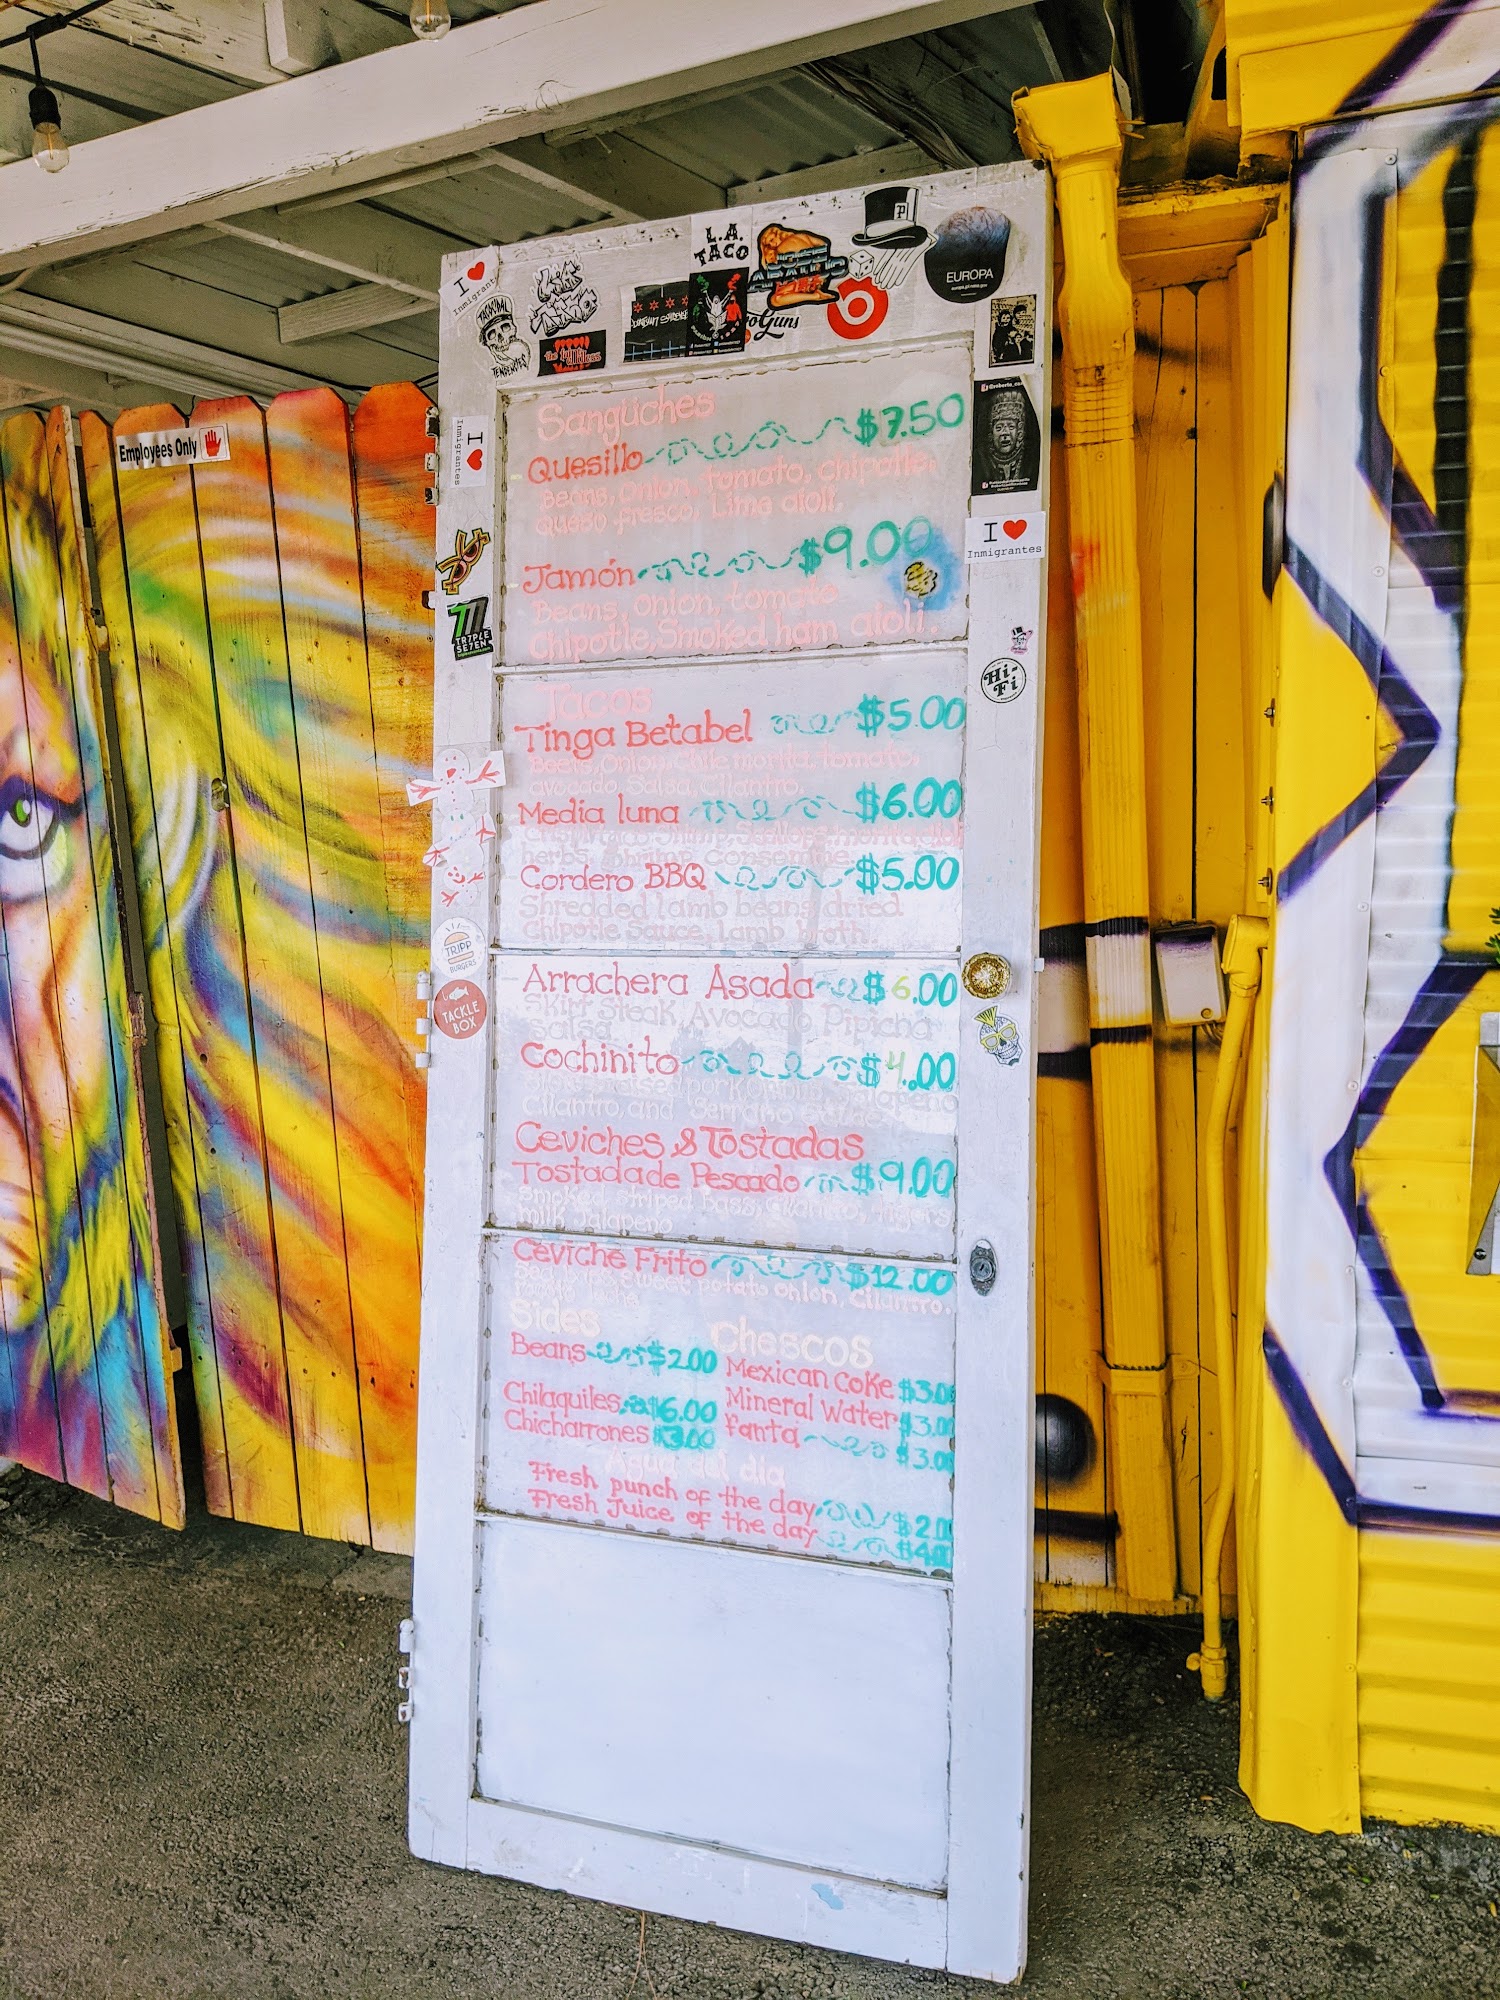 Employees Only
I ❤ Inmigrantes
L.A. TACO
TACTICAL
TENDENCIES
EUROPA
P
Guns
I ❤ Inmigrantes
I ❤
Inmigrantes
TR7PLE
SE7EN
Hi-
Fi
TRIPP
BURGERS
TACKLE
BOX
Sangüches
Quesillo $7.50
Beans, Onion, tomato, chipotle,
queso fresco, Lime aioli.
Jamón $9.00
Beans, Onion, tomato
Chipotle, Smoked ham aioli.
Tacos
Tinga Betabel $5.00
Beets, Onion, Chile morita, tomato,
avocado, Salsa, Cilantro.
Media luna $6.00
herbs, Shrimp Consomme
Cordero BBQ $5.00
Shredded lamb beans dried
Chipotle Sauce, lamb broth.
Arrachera Asada $6.00
Skirt Steak, Avocado Pipicha
Salsa
Cochinito $4.00
Cilantro, and Serrano
Ceviches & Tostadas
Tostada de Pescado $9.00
Smoked Striped Bass, Cilantro, tigers
milk Jalapeno
Ceviche Frito $12.00
sweet potato Onion, Cilantro.
Sides
Beans $2.00
Chilaquiles $6.00
Chicharrones $3.00
Chescos
Mexican Coke $3.00
Mineral Water $3.00
Fanta $3.00
Agua del dia
Fresh punch of the day $2.0
Fresh Juice of the day $4.